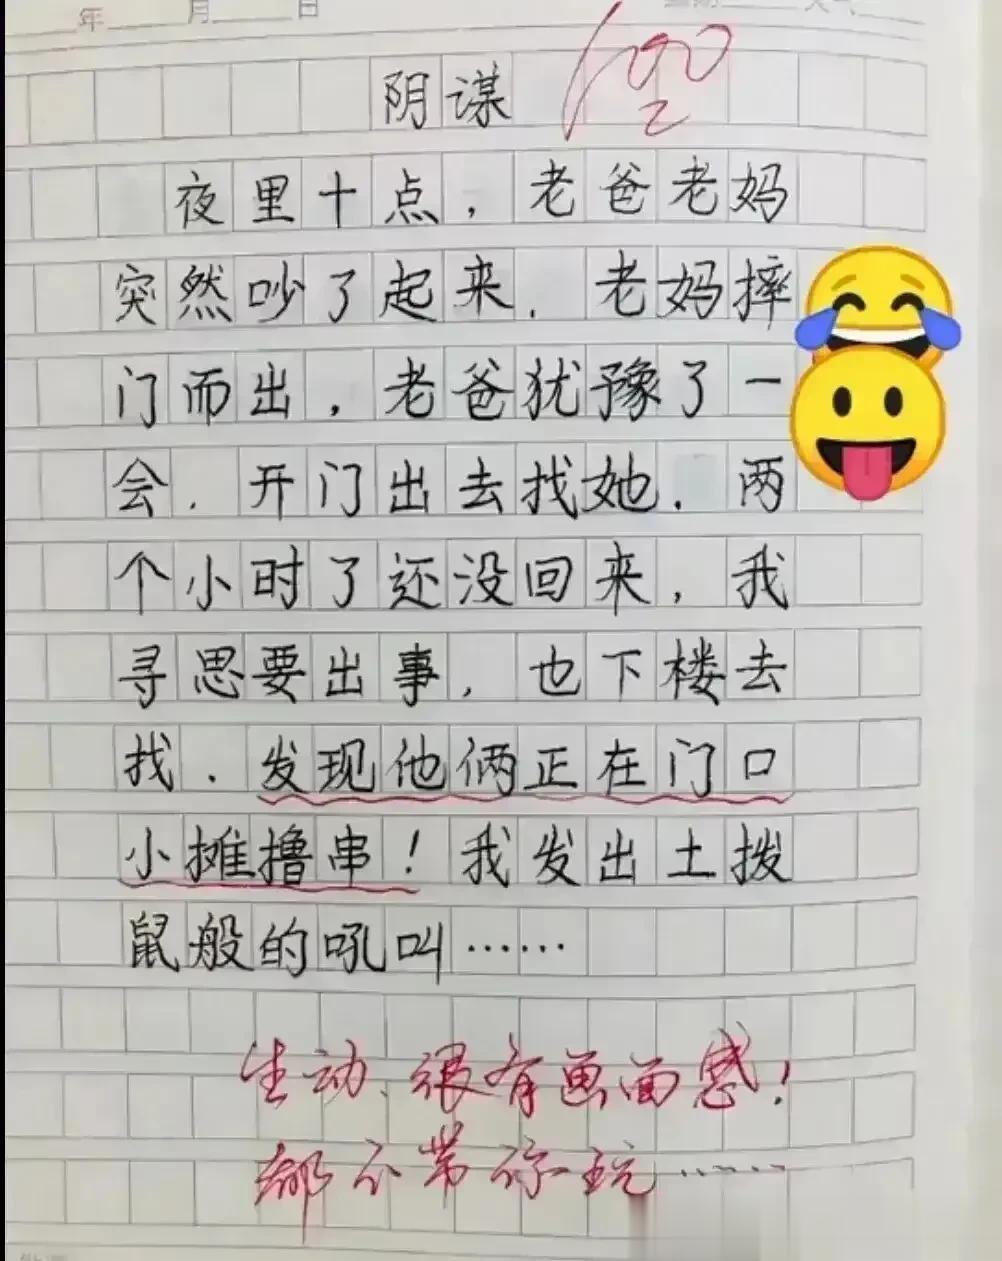 年 月 日
阴谋 100
夜里十点，老爸老妈
突然吵了起来．老妈摔
门而出，老爸犹豫了一
会．开门出去找她．两
个小时了还没回来，我
寻思要出事，也下楼去
找．发现他俩正在门口
小摊撸串！我发出土拨
鼠般的吼叫……
生动、很有画面感！
都不带你玩……